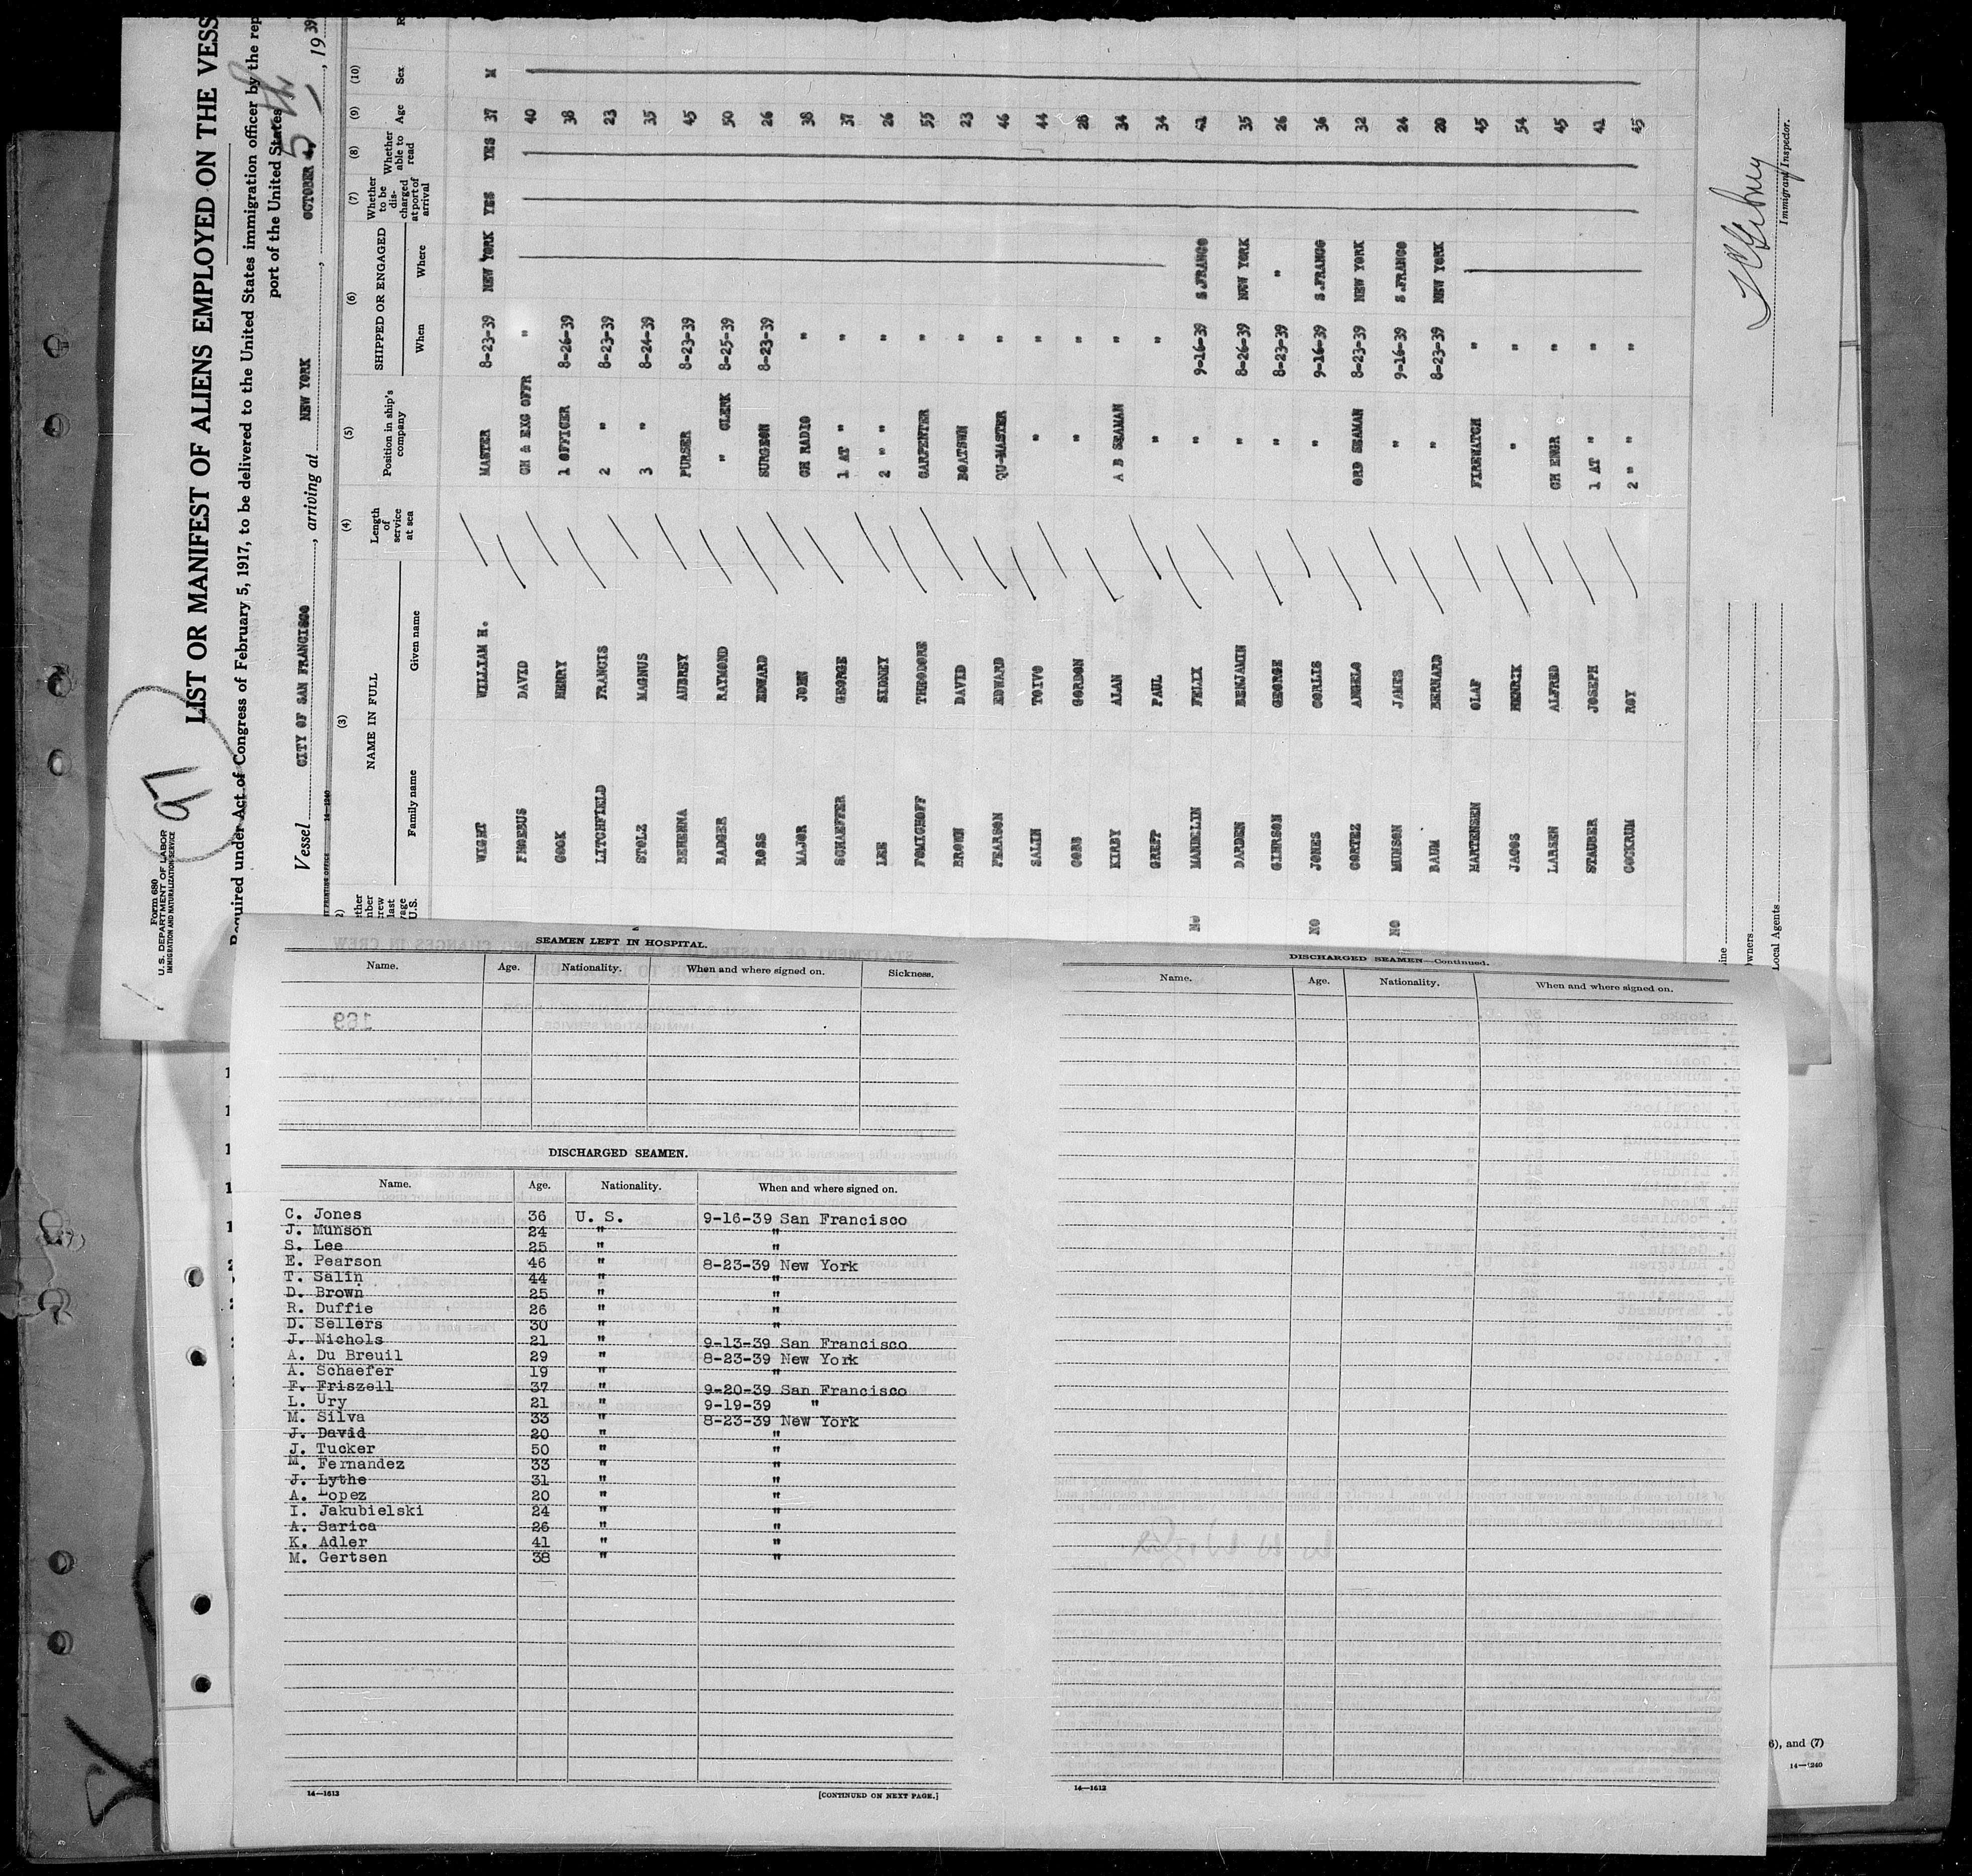 Form 680
U. S. DEPARTMENT OF LABOR
IMMIGRATION AND NATURALIZATION SERVICE
97
LIST OR MANIFEST OF ALIENS EMPLOYED ON THE VESS
Required under Act of Congress of February 5, 1917, to be delivered to the United States immigration officer by the rep
port of the United States
5 th
Vessel CITY OF SAN FRANCISCO, arriving at NEW YORK, OCTOBER 4, 1939
14-1240
(3) (4) (5) (6) (7) (8) (9) (10)
NAME IN FULL
Family name Given name
Length of service at sea
Position in ship's company
SHIPPED OR ENGAGED
When Where
Whether to be discharged at port of arrival
Whether able to read
Age Sex
WIGHT WILLIAM H. MASTER 8-23-39 NEW YORK YES YES 37 M
PHOEBUS DAVID CH & EXC OFFR " 40
COOK HENRY 1 OFFICER 8-26-39 38
LITCHFIELD FRANCIS 2 " 8-23-39 23
STOLZ MAGNUS 3 " 8-24-39 35
BEHENNA AUBREY PURSER 8-23-39 45
BADGER RAYMOND " CLERK 8-25-39 50
ROSS EDWARD SURGEON 8-23-39 26
MAJOR JOHN CH RADIO " 38
SCHAEFFER GEORGE 1 AT " " 37
LEE SIDNEY 2 " " " 26
FOMICHOFF THEODORE CARPENTER " 55
BROWN DAVID BOATSWN " 23
PEARSON EDWARD QU-MASTER " 46
SALIN TOIVO " " 44
COBB GORDON " " 28
KIRBY ALAN A B SEAMAN " 34
GREFF PAUL " " 34
NO MANDELIN FELIX " 9-16-39 S.FRANCO 41
DARDEN BENJAMIN " 8-26-39 NEW YORK 35
GIERSON GEORGE " 8-23-39 " 26
NO JONES CORLIS " 9-16-39 S.FRANCO 36
CORTEZ ANGELO ORD SEAMAN 8-23-39 NEW YORK 32
NO MUNSON JAMES " 9-16-39 S.FRANCO 24
BAUM BERNARD " 8-23-39 NEW YORK 20
MARTENSEN OLAF FIREWATCH " 45
JACOS HENRIK " " 54
LARSEN ALFRED CH ENGR " 45
STAUBER JOSEPH 1 AT " " 41
COCKRUM ROY 2 " " " 45
Immigrant Inspector.
Local Agents
SEAMEN LEFT IN HOSPITAL.
Name. Age. Nationality. When and where signed on. Sickness.
DISCHARGED SEAMEN.
Name. Age. Nationality. When and where signed on.
C. Jones 36 U. S. 9-16-39 San Francisco
J. Munson 24 " "
S. Lee 25 " "
E. Pearson 46 " 8-23-39 New York
T. Salin 44 " "
D. Brown 25 " "
R. Duffie 26 " "
D. Sellers 30 " "
J. Nichols 21 " 9-13-39 San Francisco
A. Du Breuil 29 " 8-23-39 New York
A. Schaefer 19 " "
F. Friszell 37 " 9-20-39 San Francisco
L. Ury 21 " 9-19-39 "
M. Silva 33 " 8-23-39 New York
J. David 20 " "
J. Tucker 50 " "
M. Fernandez 33 " "
J. Lythe 31 " "
A. Lopez 20 " "
I. Jakubielski 24 " "
A. Sarica 26 " "
K. Adler 41 " "
M. Gertsen 38 " "
14—1613
[CONTINUED ON NEXT PAGE.]
DISCHARGED SEAMEN—Continued.
Name. Age. Nationality. When and where signed on.
14—1613
6), and (7)
14—1240